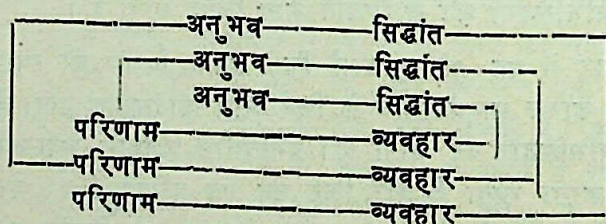 अनुभव सिद्धांत
अनुभव सिद्धांत
अनुभव सिद्धांत
परिणाम व्यवहार
परिणाम व्यवहार
परिणाम व्यवहार